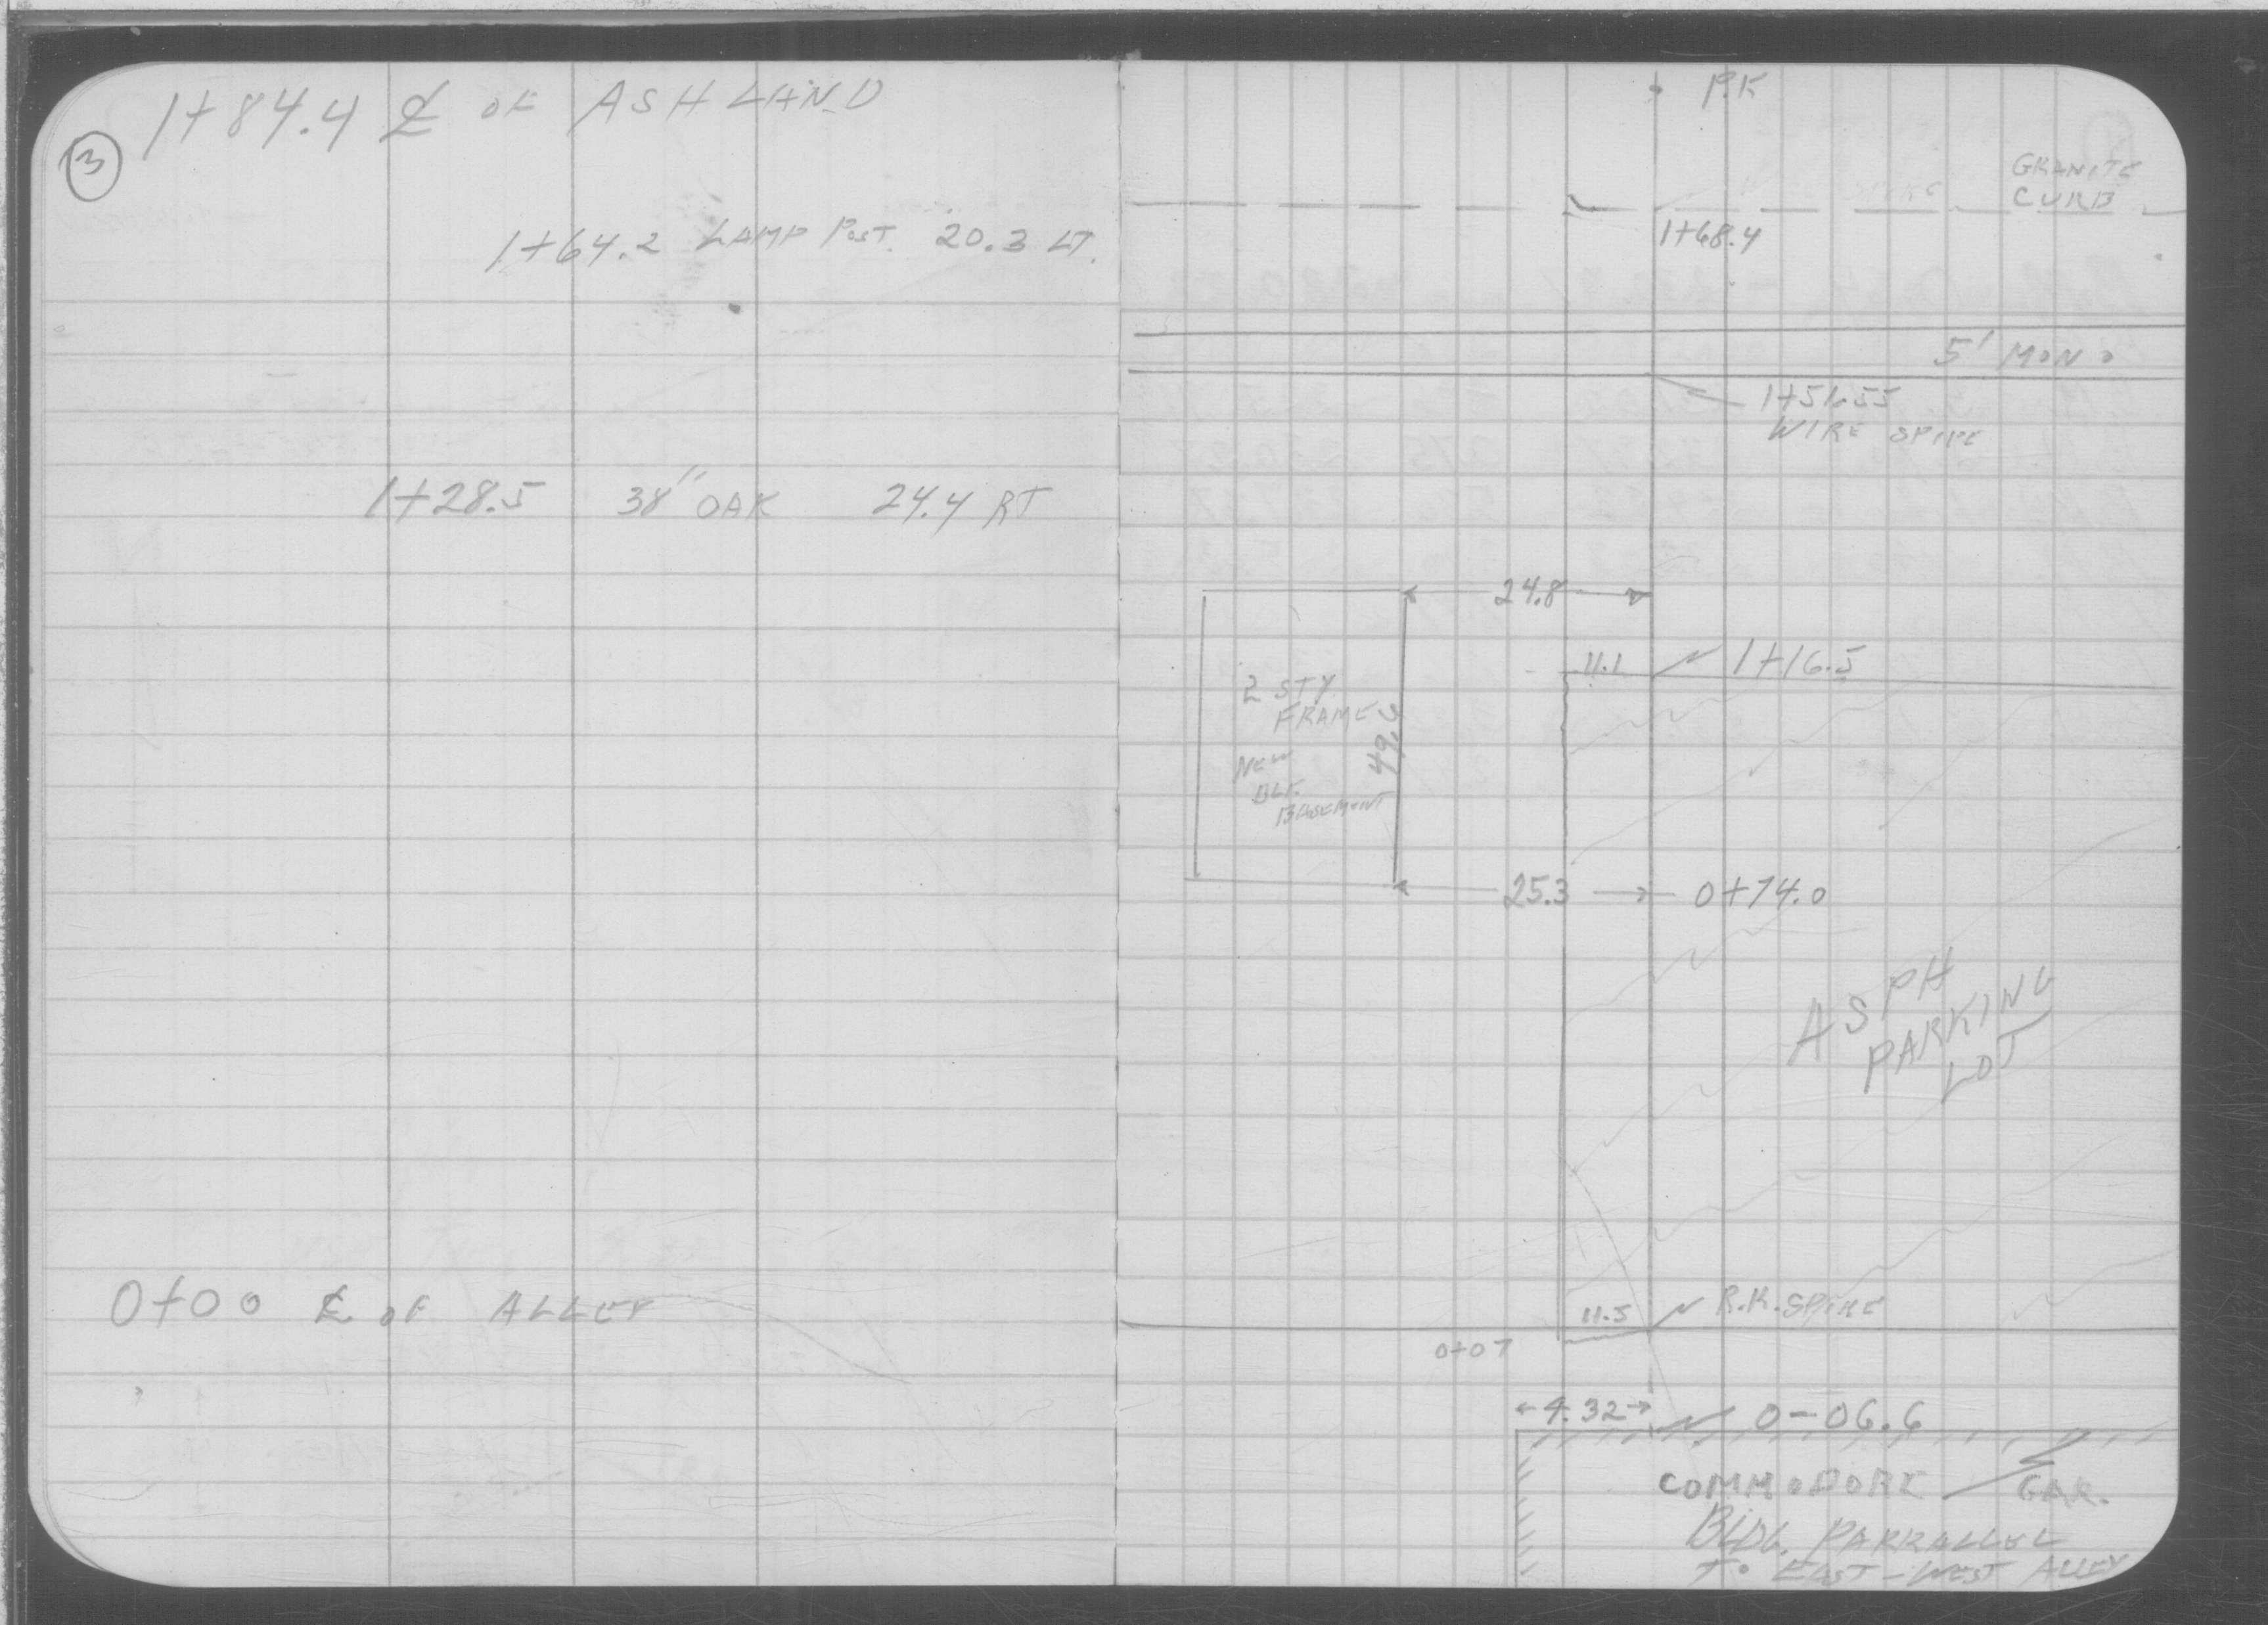 1+84.4 ℄ OF ASHLAND
3
1+64.2 LAMP POST. 20.3 LT.
1+28.5 38" OAK 24.4 RT
0+00 ℄ OF ALLEY
P.K
GRANITE
CURB
1+68.4
5' MONO
1+51.55
WIRE SPIKE
24.8
11.1 1+16.5
2 STY
FRAME
NEW
BLK.
BASEMENT
25.3 0+74.0
ASPH
PARKING
LOT
11.5 R.R. SPIKE
0+07
9.32 0-06.6
COMMODORE GAR.
BLDG. PARRALLEL
TO EAST-WEST ALLEY